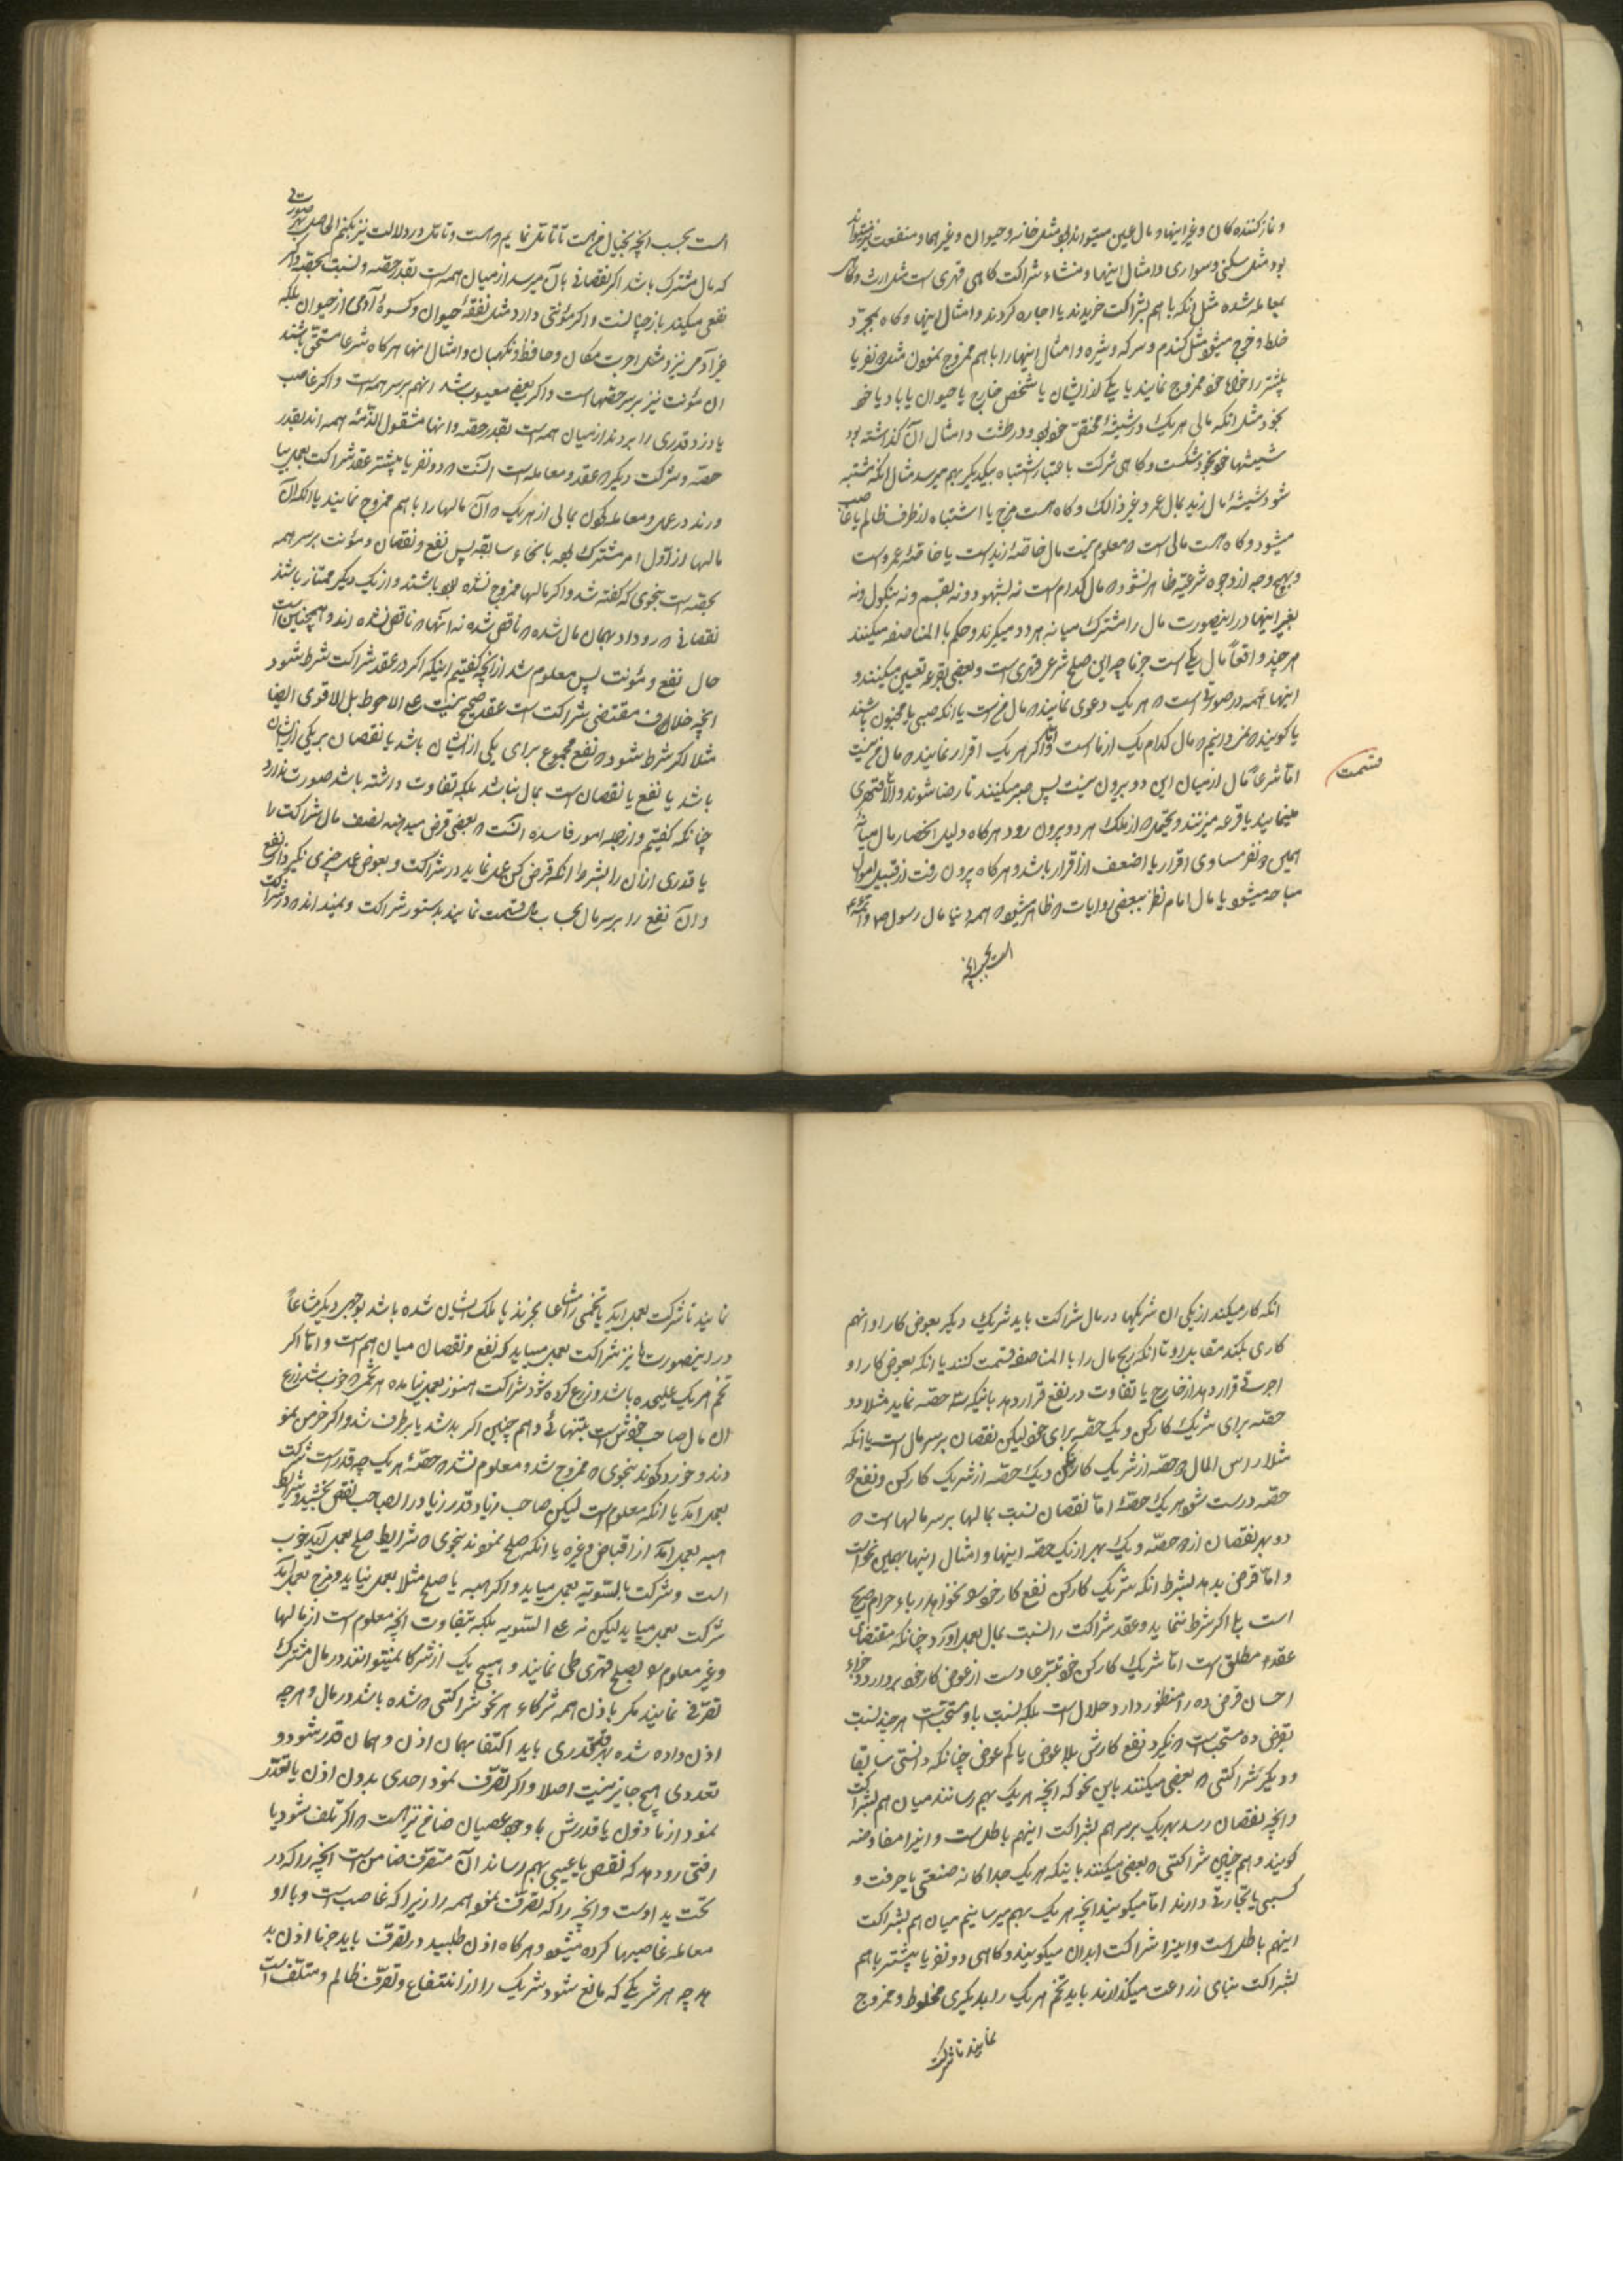 و نماز کننده کان و غیر اینها و مال عین میتواند بود مثل خانه و حیوان و غیر اهما و منفعت نیز میتواند
بود مثل سکنی و سواری و امثال اینها و منشاء شراکت کاهی قهری است مثل ارث و کاهی
بمعامله شده مثل انکه با هم بشراکت خریدند یا اجاره کردند و امثال اینها و کاه بمجرّد
خلط و مزج میشود مثل کندم و سرکه و شیره و امثال اینها را با هم ممزوج نمودن مثل ۲ نفر یا
بیشتر را خواه خود ممزوج نمایند یا یکی از ایشان یا شخص خارج یا حیوان یا باد یا خود
بخود مثل انکه مالی هر یک در شیشهٔ مختصّ خود بود و در طشت و امثال آن کذاشته بود
شیشها خود بخود شکست و کاهی شرکت باعتبار اشتباه بیکدیکر بهم میرسد مثال انکه مشتبه
شود شیشهٔ مال زید بمال عمرو و غیر ذالک و کاه هست مزج یا اشتباه از طرف ظالم یا غاصب
میشود و کاه هست مالی است ۲ معلوم نیست مال خاصّهٔ زید است یا خاصّهٔ عمرو است
و بهیچ وجه از وجوه شرعیّه ظاهر نشود ۲ مال کدام است نه بشهود و نه بقسم و نه بنکول و نه
بغیر اینها در اینصورت مال را مشترک میانه هر دو میکیرند و حکم بالمناصفه میکنند
هر چند واقعاً مال یکی است جزماً چه این صلح شرعی قهری است و بعضی بقرعه تعیین میکنند و
اینها همه در صورتی است ۲ هر یک دعوی نمایند ۲ مال من است یا انکه صبی یا مجنون باشند
یا کویند ۲ نمیدانیم ۲ مال کدام یک از ما است و امّا اکر هر یک اقرار نمایند ۲ مال من نیست
امّا شرعاً مال از میان این دو بیرون نیست پس صبر میکنند تا رضا شوند و الّا قهری
مینمایند یا قرعه میزنند و یحتمل ۲ از ملک هر دو بیرون رود هر کاه دلیل انحصار مال میانهٔ
همین ۲ نفر مساوی اقرار یا اضعف از اقرار باشد و هر کاه بیرون رفت از قبیل اموال
مباحه میشود یا مال امام نظر ببعضی روایات ۲ ظاهر میشود ۲ همه دنیا مال رسول ص و ائمّه ع
است بحسب انچه
قسمت
است بحسب انچه بخیال من است تا تامّل نمایم ۲ هست و تامّل در دلالت نیز بکنم الحاصل بهر صورتی
که مال مشترک باشد اکر نقصانی بآن میرسد از میان همه است بقدر حصّه و نسبت بحصّه و اکر
نفعی میکند باز چنانست و اکر مؤنتی دارد مثل نفقهٔ حیوان و کسوهٔ آدمی از حیوان بلکه
غیر آدمی نیز و مثل اجرت مکان و حافظ و نکهبان و امثال اینها هر کاه شرعا مستحق باشند
ان مؤنت نیز بر سر حصّها است و اکر بعضی معیوب شد انهم بر سر همه است و اکر غاصب
یا دزد قدری را بردند از میان همه است بقدر حصّه و انها مشغول الذّمّهٔ همه اند بقدر
حصّه و شرکت دیکر ۲ عقد و معامله است انست ۲ دو نفر یا بیشتر عقد شراکت بعمل بیا
ورند در عمل و معامله کون بمالی از هر یک ۲ آن مالها را با هم ممزوج نمایند یا انکه آن
مالها از اوّل امر مشترک بود بانحاء سابقه پس نفع و نقصان و مؤنت بر سر همه
بحصّه است بنحوی که کفته شد و اکر مالها ممزوج نشده بود باشند و از یک دیکر ممتاز باشند
نقصانی ۲ رو داد بهمان مال شده ۲ ناقص شده نه انها ۲ ناقص نشده اند و همچنین است
حال نفع و مؤنت پس معلوم شد از انچه کفتیم اینکه اکر در عقد شراکت شرط شود
انچه خلاف مقتضی شراکت است عقد صحیح نیست علی الاحوط بل الاقوی ایضا
مثلا اکر شرط شود ۲ نفع مجموع برای یکی از ایشان باشد یا نقصان بر یکی از ایشان
باشد یا نفع یا نقصان است بمال بنا باشد بلکه تفاوت داشته باشد صورت ندارد
چنانکه کفتیم و از جمله امور فاسده انست ۲ بعضی قرض میدهند نصف مال شراکت را
یا قدری ازان را بشرط انکه قرض کن عمل نماید در شراکت و بعوض عمل چیزی نکیرد از نفع
و آن نفع را بر سر مال بحساب مال قسمت نمایند بدستور شراکت و نمیدانند ۲ در شراکت
انکه کار میکند از یکی ان شریکها در مال شراکت باید شریک دیکر بعوض کار او انهم
کاری بکند مقابل او تا انکه ربح مال را بالمناصفه قسمت کنند یا انکه بعوض کار او
اجرتی قرار دهد از خارج یا تفاوت در نفع قرار دهد باینکه سه حصّه نماید مثلا دو
حصّه برای شریک کارکن و یک حصّه برای خود لیکن نقصان بر سر مال است یا انکه
مثلا راس المال ۲ حصّه از شریک کار نکن و یک حصّه از شریک کارکن و نفع ۲
حصّه درست شود هر یک حصّهٔ امّا نقصان نسبت بمالها بر سر مالها است ۲
دو بهر نقصان از ۲ حصّه و یک بهر از یک حصّه اینها و امثال اینها بهمین نحو است
و امّا قرض بدهد بشرط انکه شریک کارکن نفع کار خود نخواهد رباء حرام صریح
است بلی اکر شرط ننماید و عقد شراکت را نسبت بمال بعمل آورد چنانکه مقتضای
عقد ۲ مطلق است امّا شریک کارکن خود تبرّعا دست از عوض کار خود بردارد و جزاء
احسان قرض ده را منظور دارد حلال است بلکه نسبت باو مستحبّ است هر چند نسبت
بقرض ده مستحبّ است ۲ نکیرد نفع کارش بلا عوض یا کم عوض چنانکه دانستی سابقا
و دیکر شراکتی ۲ بعضی میکنند باین نحو که انچه هر یک بهم رسانند میان هم بشراکت
و انچه نقصان رسد بهر یک بر سر هم بشراکت اینهم باطل است و اینرا مفاوضه
کویند و هم چنین شراکتی ۲ بعضی میکنند باینکه هر یک جداکانه صنعتی یا حرفت و
کسبی یا تجارتی دارند امّا میکویند انچه هر یک بهم میرسانیم میان هم بشراکت
اینهم باطل است و اینرا شراکت ابدان میکویند و کاهی دو نفر یا بیشتر با هم
بشراکت بنای زراعت میکذارند باید تخم هر یک را بدیکری مخلوط و ممزوج
نمایند تا شرکت
نمایند تا شرکت بعمل آید یا تخمی را مشاعا بخرند یا ملک ایشان شده باشد بوجهی دیکر مشاعاً
در اینصورت ها نیز شراکت بعمل میاید که نفع و نقصان میان هم است و امّا اکر
تخم هر یک علیحده باشد و زرع کرده شود شراکت هنوز بعمل نیامده هر تخمی ۲ خوب شد زرع
ان مال صاحب خودش است بتنهائی و هم چنین اکر بد شد یا بر طرف شد و اکر خرمن نمو
دند و خرد کوند بنحوی ۲ ممزوج شد و معلوم نشد ۲ حصّهٔ هر یک چه قدر است شرکت
بعمل آمد یا انکه معلوم است لیکن صاحب زیاد قدر زیاد را بصاحب نقص بخشید و شرایط
هبه بعمل آمد از اقباض و غیره یا انکه صلح نمودند بنحوی ۲ شرایط صلح بعمل آید خوب
است و شرکت بالسّویّه بعمل میاید و اکر هبه یا صلح مثلا بعمل نیاید و مزج بعمل آید
شرکت بعمل میاید لیکن نه علی السّویه بلکه بتفاوت انچه معلوم است از مالها
و غیر معلوم بود بصلح قهری طی نمایند و هیچ یک از شرکا نمیتوانند در مال مشترک
تصرّفی نمایند مکر باذن همه شرکاء هر نحو شراکتی ۲ شده باشد در مال و هر چه
اذن داده شده بهر قدری باید اکتفا بهمان اذن و همان قدر شود و
تعدّی هیچ جایز نیست اصلا و اکر تصرّف نمود احدی بدون اذن یا تعدّی
نمود از ماذون یا قدرش با وجود عصیان ضامن نیز است ۲ اکر تلف شود یا
افتی رو دهد که نقص یا عیبی بهم رساند آن متصرّف ضامن است انچه را که در
تحت ید اوست و انچه را که تصرّف نمود همه را زیرا که غاصب است و با او
معامله غاصبها کرده میشود و هر کاه اذن طلبید در تصرّف باید جزما اذن بد
هد چه هر شریکی که مانع شود شریک را از انتفاع و تصرّف ظالم و متلف است